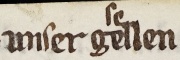 se
unser gellen